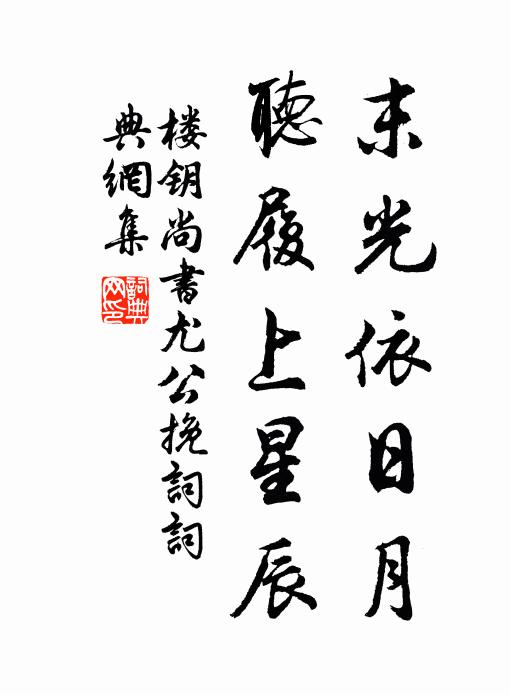 末光依日月
聽履上星辰
楼钥尚書尤公挽詞詞
典網集
詞典网印